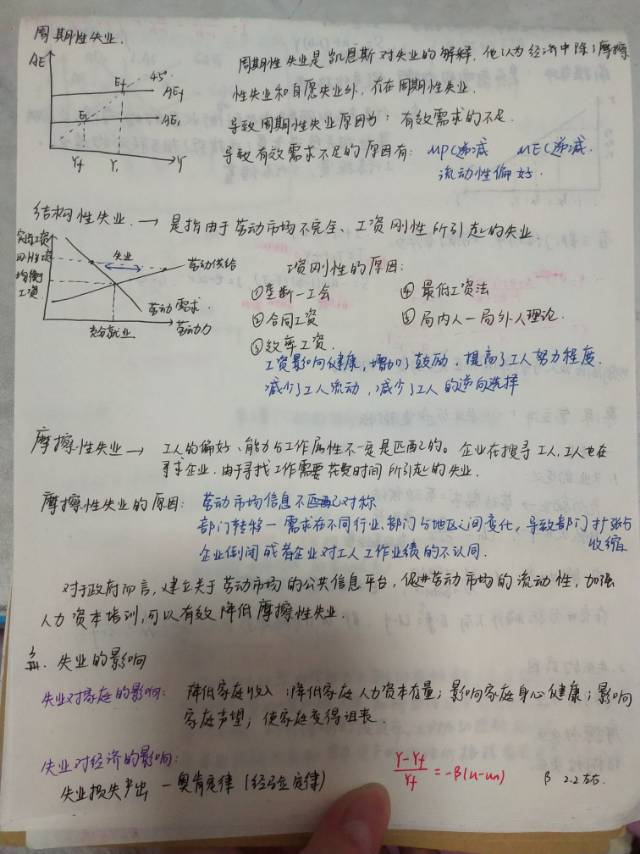 周期性失业.
AE
45°
Ef
AEf
E1
AE1
Yf Y1 Y
周期性失业是凯恩斯对失业的解释,他认为经济中除了摩擦
性失业和自愿失业外,存在周期性失业.
导致周期性失业原因为:有效需求的不足.
导致有效需求不足的原因有: MPC递减 MEC递减.
流动性偏好.
结构性失业. → 是指由于劳动市场不完全、工资刚性所引起的失业
实际工资
刚性工资
均衡
工资
失业
劳动供给
劳动需求
充分就业 劳动力
工资刚性的原因:
①垄断—工会 ④最低工资法
②合同工资 ⑤局内人—局外人理论.
③效率工资.
工资影响健康,增加了鼓励,提高了工人努力程度.
减少了工人流动,减少了工人的逆向选择
摩擦性失业 → 工人的偏好、能力与工作属性不一定是匹配的。企业在搜寻工人,工人也在
寻求企业.由于寻找工作需要花费时间所引起的失业.
摩擦性失业的原因: 劳动市场信息不对称
部门转移—需求在不同行业、部门与地区之间变化,导致部门扩张与
收缩.
企业倒闭或者企业对工人工作业绩的不认同.
对于政府而言,建立关于劳动市场的公共信息平台,促进劳动市场的流动性,加强
人力资本培训,可以有效降低摩擦性失业.
三. 失业的影响
失业对家庭的影响: 降低家庭收入;降低家庭人力资本存量;影响家庭身心健康;影响
家庭声望,使家庭变得沮丧.
失业对经济的影响:
失业损失产出 — 奥肯定律(经验定律) (Y-Yf)/Yf = -β(u-un) β 2.2左右.